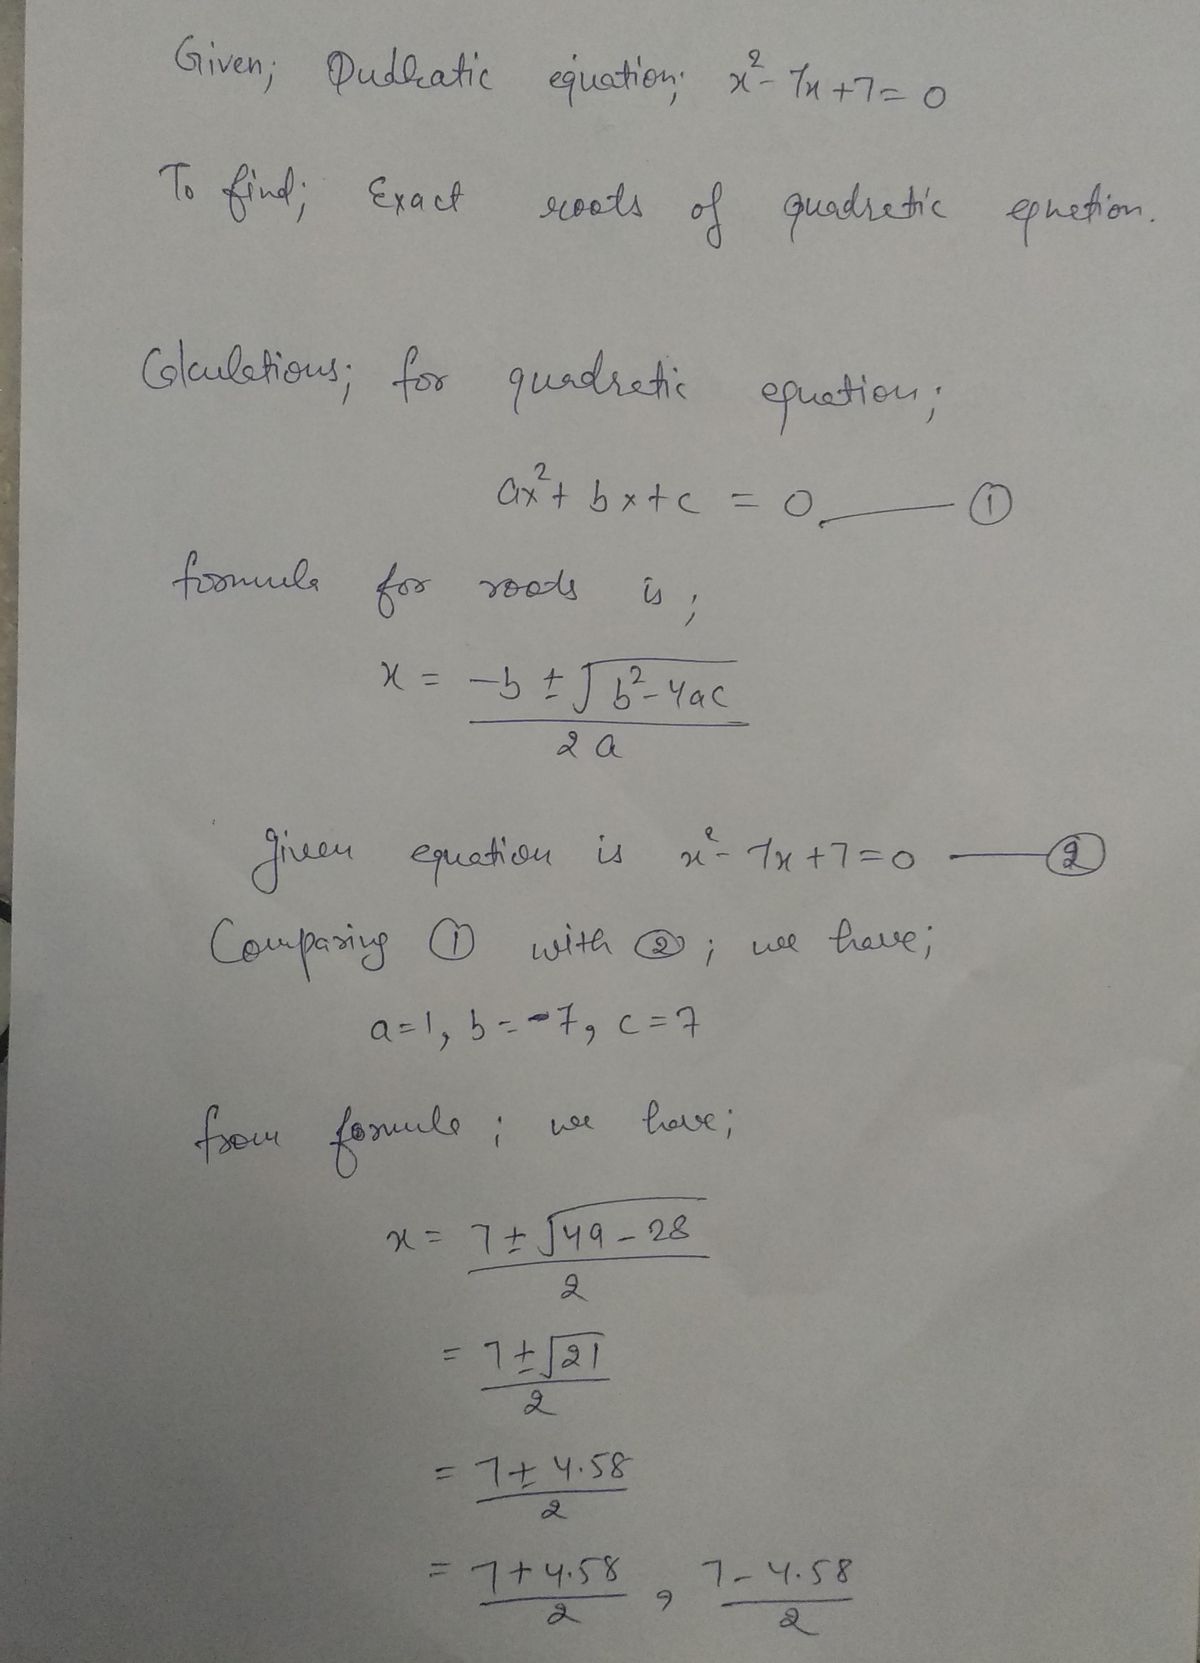 Given; Qudratic equation; x² - 7x + 7 = 0
To find; Exact roots of quadretic equetion.
Calculations; for quadretic equation;
ax² + bx + c = 0 — ①
formula for roots is;
x = (-b ± √(b² - 4ac)) / 2a
given equation is x² - 7x + 7 = 0 — ②
Comparing ① with ②; we have;
a=1, b=-7, c=7
from formula; we have;
x = (7 ± √(49 - 28)) / 2
= (7 ± √21) / 2
= (7 ± 4.58) / 2
= (7 + 4.58) / 2 , (7 - 4.58) / 2